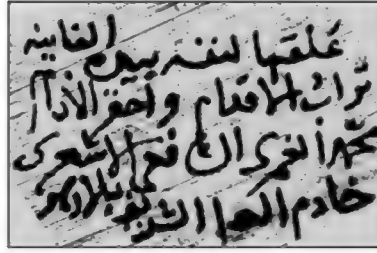 علقها لنفسه بيمينه الفانيه
تراب الاقدام واحقر الانام
محمد الشافعي الاشعري
خادم العلم الشريف